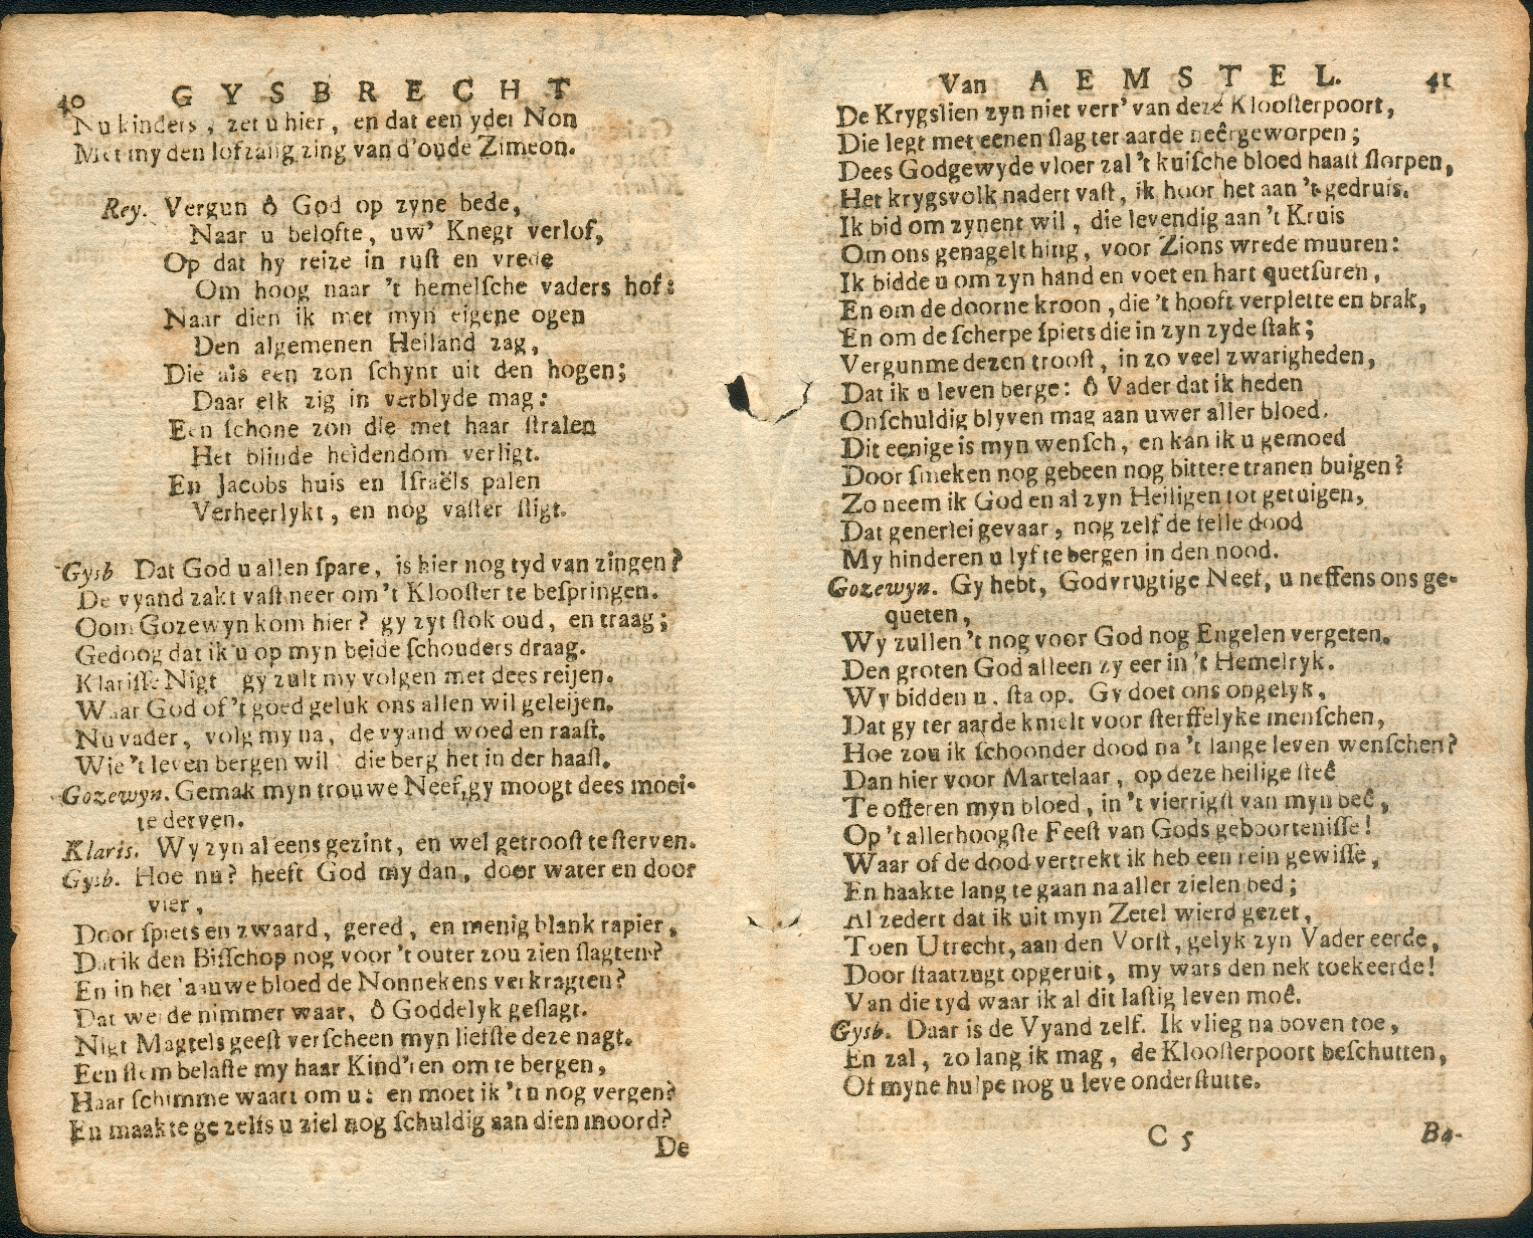 40 GYSBRECHT
Nu kinders, zet u hier, en dat een yder Non
Met my den lofzang zing van d'oude Zimeon.
Rey. Vergun ô God op zyne bede,
Naar u belofte, uw' Knegt verlof,
Op dat hy reize in ruſt en vrede
Om hoog naar 't hemelſche vaders hof:
Naar dien ik met myn eigene ogen
Den algemenen Heiland zag,
Die als een zon ſchynt uit den hogen;
Daar elk zig in verblyde mag:
Een ſchone zon die met haar ſtralen
Het blinde heidendom verligt.
En Jacobs huis en Iſraëls palen
Verheerlykt, en nog vaſter ſtigt.
Gysb Dat God u allen ſpare, is hier nog tyd van zingen?
De vyand zakt vaſt neer om 't Klooſter te beſpringen.
Oom Gozewyn kom hier? gy zyt ſtok oud, en traag;
Gedoog dat ik u op myn beide ſchouders draag.
Klariſſe Nigt gy zult my volgen met dees reijen.
Waar God of 't goed geluk ons allen wil geleijen.
Nu vader, volg my na, de vyand woed en raaſt.
Wie 't leven bergen wil die berg het in der haaſt.
Gozewyn. Gemak myn trouwe Neef, gy moogt dees moei-
te derven.
Klaris. Wy zyn al eens gezint, en wel getrooſt te ſterven.
Gysb. Hoe nu? heeft God my dan, door water en door
vier,
Door ſpiets en zwaard, gered, en menig blank rapier,
Dat ik den Biſſchop nog voor 't outer zou zien ſlagten?
En in het laauwe bloed de Nonnekens verkragten?
Dat werde nimmer waar, ô Goddelyk geſlagt.
Nigt Magtels geeſt verſcheen myn liefſte deze nagt.
Een ſtem belaſte my haar Kind'ren om te bergen,
Haar ſchimme waart om u: en moet ik 't u nog vergen?
En maakte ge zelfs u ziel nog ſchuldig aan dien moord?
De
Van AEMSTEL. 41
De Krygslien zyn niet verr' van deze Klooſterpoort,
Die legt met eenen ſlag ter aarde neêrgeworpen;
Dees Godgewyde vloer zal 't kuiſche bloed haaſt ſlorpen,
Het krygsvolk nadert vaſt, ik hoor het aan 't gedruis.
Ik bid om zynent wil, die levendig aan 't Kruis
Om ons genagelt hing, voor Zions wrede muuren:
Ik bidde u om zyn hand en voet en hart quetſuren,
En om de doorne kroon, die 't hooft verplette en brak,
En om de ſcherpe ſpiets die in zyn zyde ſtak;
Vergun me dezen trooſt, in zo veel zwarigheden,
Dat ik u leven berge: ô Vader dat ik heden
Onſchuldig blyven mag aan uwer aller bloed.
Dit eenige is myn wenſch, en kan ik u gemoed
Door ſmeken nog gebeen nog bittere tranen buigen?
Zo neem ik God en al zyn Heiligen tot getuigen,
Dat generlei gevaar, nog zelf de felle dood
My hinderen u lyf te bergen in den nood.
Gozewyn. Gy hebt, Godvrugtige Neef, u neffens ons ge-
queten,
Wy zullen 't nog voor God nog Engelen vergeten.
Den groten God alleen zy eer in 't Hemelryk.
Wy bidden u, ſta op. Gy doet ons ongelyk,
Dat gy ter aarde knielt voor ſterffelyke menſchen,
Hoe zou ik ſchoonder dood na 't lange leven wenſchen?
Dan hier voor Martelaar, op deze heilige ſteê
Te offeren myn bloed, in 't vierrigſt van myn beê,
Op 't allerhoogſte Feeſt van Gods geboorteniſſe!
Waar of de dood vertrekt ik heb een rein gewiſſe,
En haakte lang te gaan na aller zielen bed;
Al zedert dat ik uit myn Zetel wierd gezet,
Toen Utrecht, aan den Vorſt, gelyk zyn Vader eerde,
Door ſtaatzugt opgeruit, my wars den nek toekeerde!
Van die tyd waar ik al dit laſtig leven moê.
Gysb. Daar is de Vyand zelf. Ik vlieg na boven toe,
En zal, zo lang ik mag, de Klooſterpoort beſchutten,
Of myne hulpe nog u leve onderſtutte.
C 5 Ba-